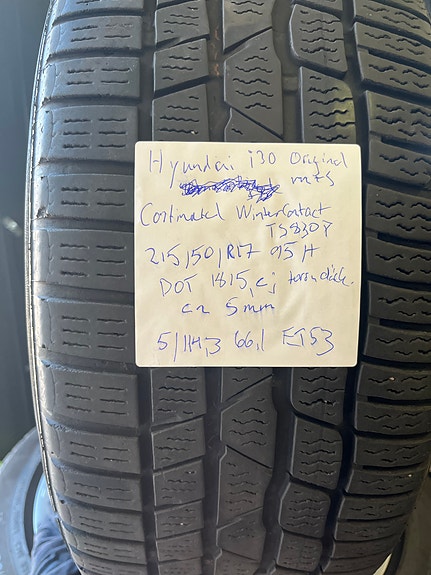 Hyundai i30 Original
Continatal WinterContact
TS830P
215,50,R17 95 H
DOT 1815,
ca 5mm
5/114,3 66,1 ET53